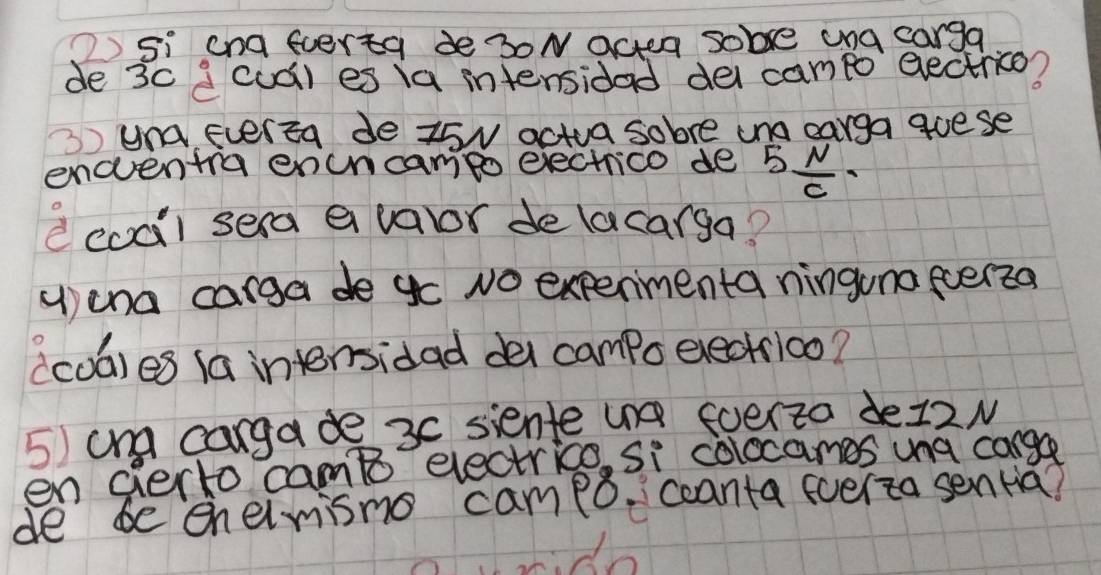 2) Si una fuerza de 30N actua sobre una carga
de 3c ¿cuál es la intensidad del campo electrico?
3) una fuerza de 15N actua sobre una carga que se
encuentra en un campo electrico de 5 N/c.
¿cuál sera el valor de la carga?
4) una carga de 4c No experimenta ninguna fuerza
¿cuál es la intensidad del campo electrico?
5) una carga de 3c siente una fuerza de 12N
en cierto campo electrico, si colocamos una carga
de 6c en el mismo campo. ¿cuanta fuerza sentia?